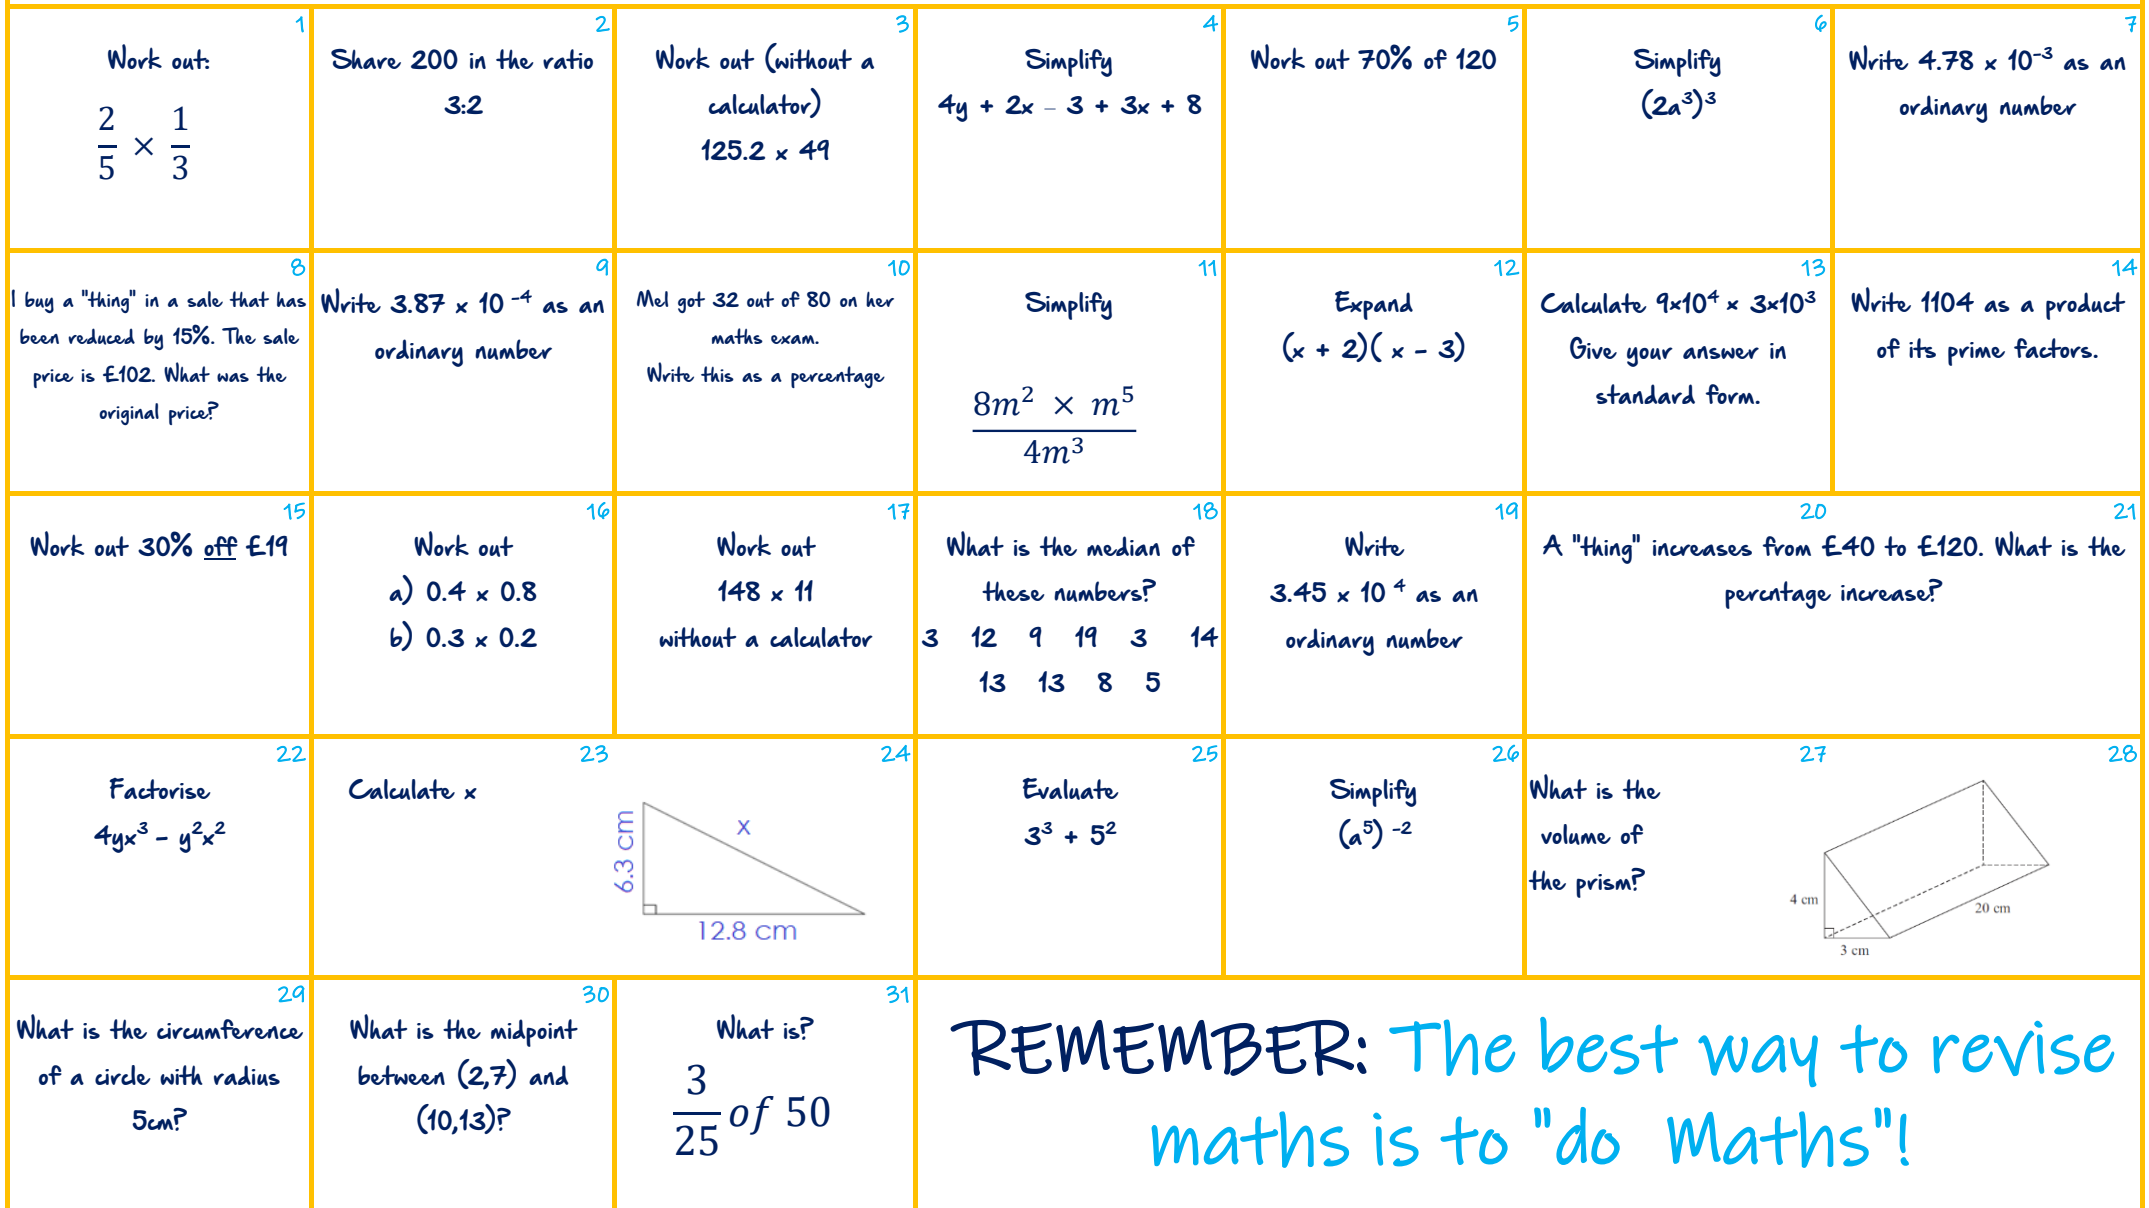 1
Work out:
2/5 × 1/3
2
Share 200 in the ratio
3:2
3
Work out (without a
calculator)
125.2 x 49
4
Simplify
4y + 2x – 3 + 3x + 8
5
Work out 70% of 120
6
Simplify
(2a³)³
7
Write 4.78 x 10⁻³ as an
ordinary number
8
I buy a "thing" in a sale that has
been reduced by 15%. The sale
price is £102. What was the
original price?
9
Write 3.87 x 10 ⁻⁴ as an
ordinary number
10
Mel got 32 out of 80 on her
maths exam.
Write this as a percentage
11
Simplify
8m² × m⁵
4m³
12
Expand
(x + 2)( x - 3)
13
Calculate 9x10⁴ x 3x10³
Give your answer in
standard form.
14
Write 1104 as a product
of its prime factors.
15
Work out 30% off £19
16
Work out
a) 0.4 x 0.8
b) 0.3 x 0.2
17
Work out
148 x 11
without a calculator
18
What is the median of
these numbers?
3 12 9 19 3 14
13 13 8 5
19
Write
3.45 x 10 ⁴ as an
ordinary number
20
21
A "thing" increases from £40 to £120. What is the
percntage increase?
22
Factorise
4yx³ - y²x²
23
24
Calculate x
6.3 cm
x
12.8 cm
25
Evaluate
3³ + 5²
26
Simplify
(a⁵) ⁻²
27
28
What is the
volume of
the prism?
4 cm
20 cm
3 cm
29
What is the circumference
of a circle with radius
5cm?
30
What is the midpoint
between (2,7) and
(10,13)?
31
What is?
3/25 of 50
REMEMBER: The best way to revise
maths is to "do Maths"!